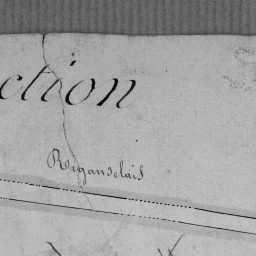 ction
Riganselais